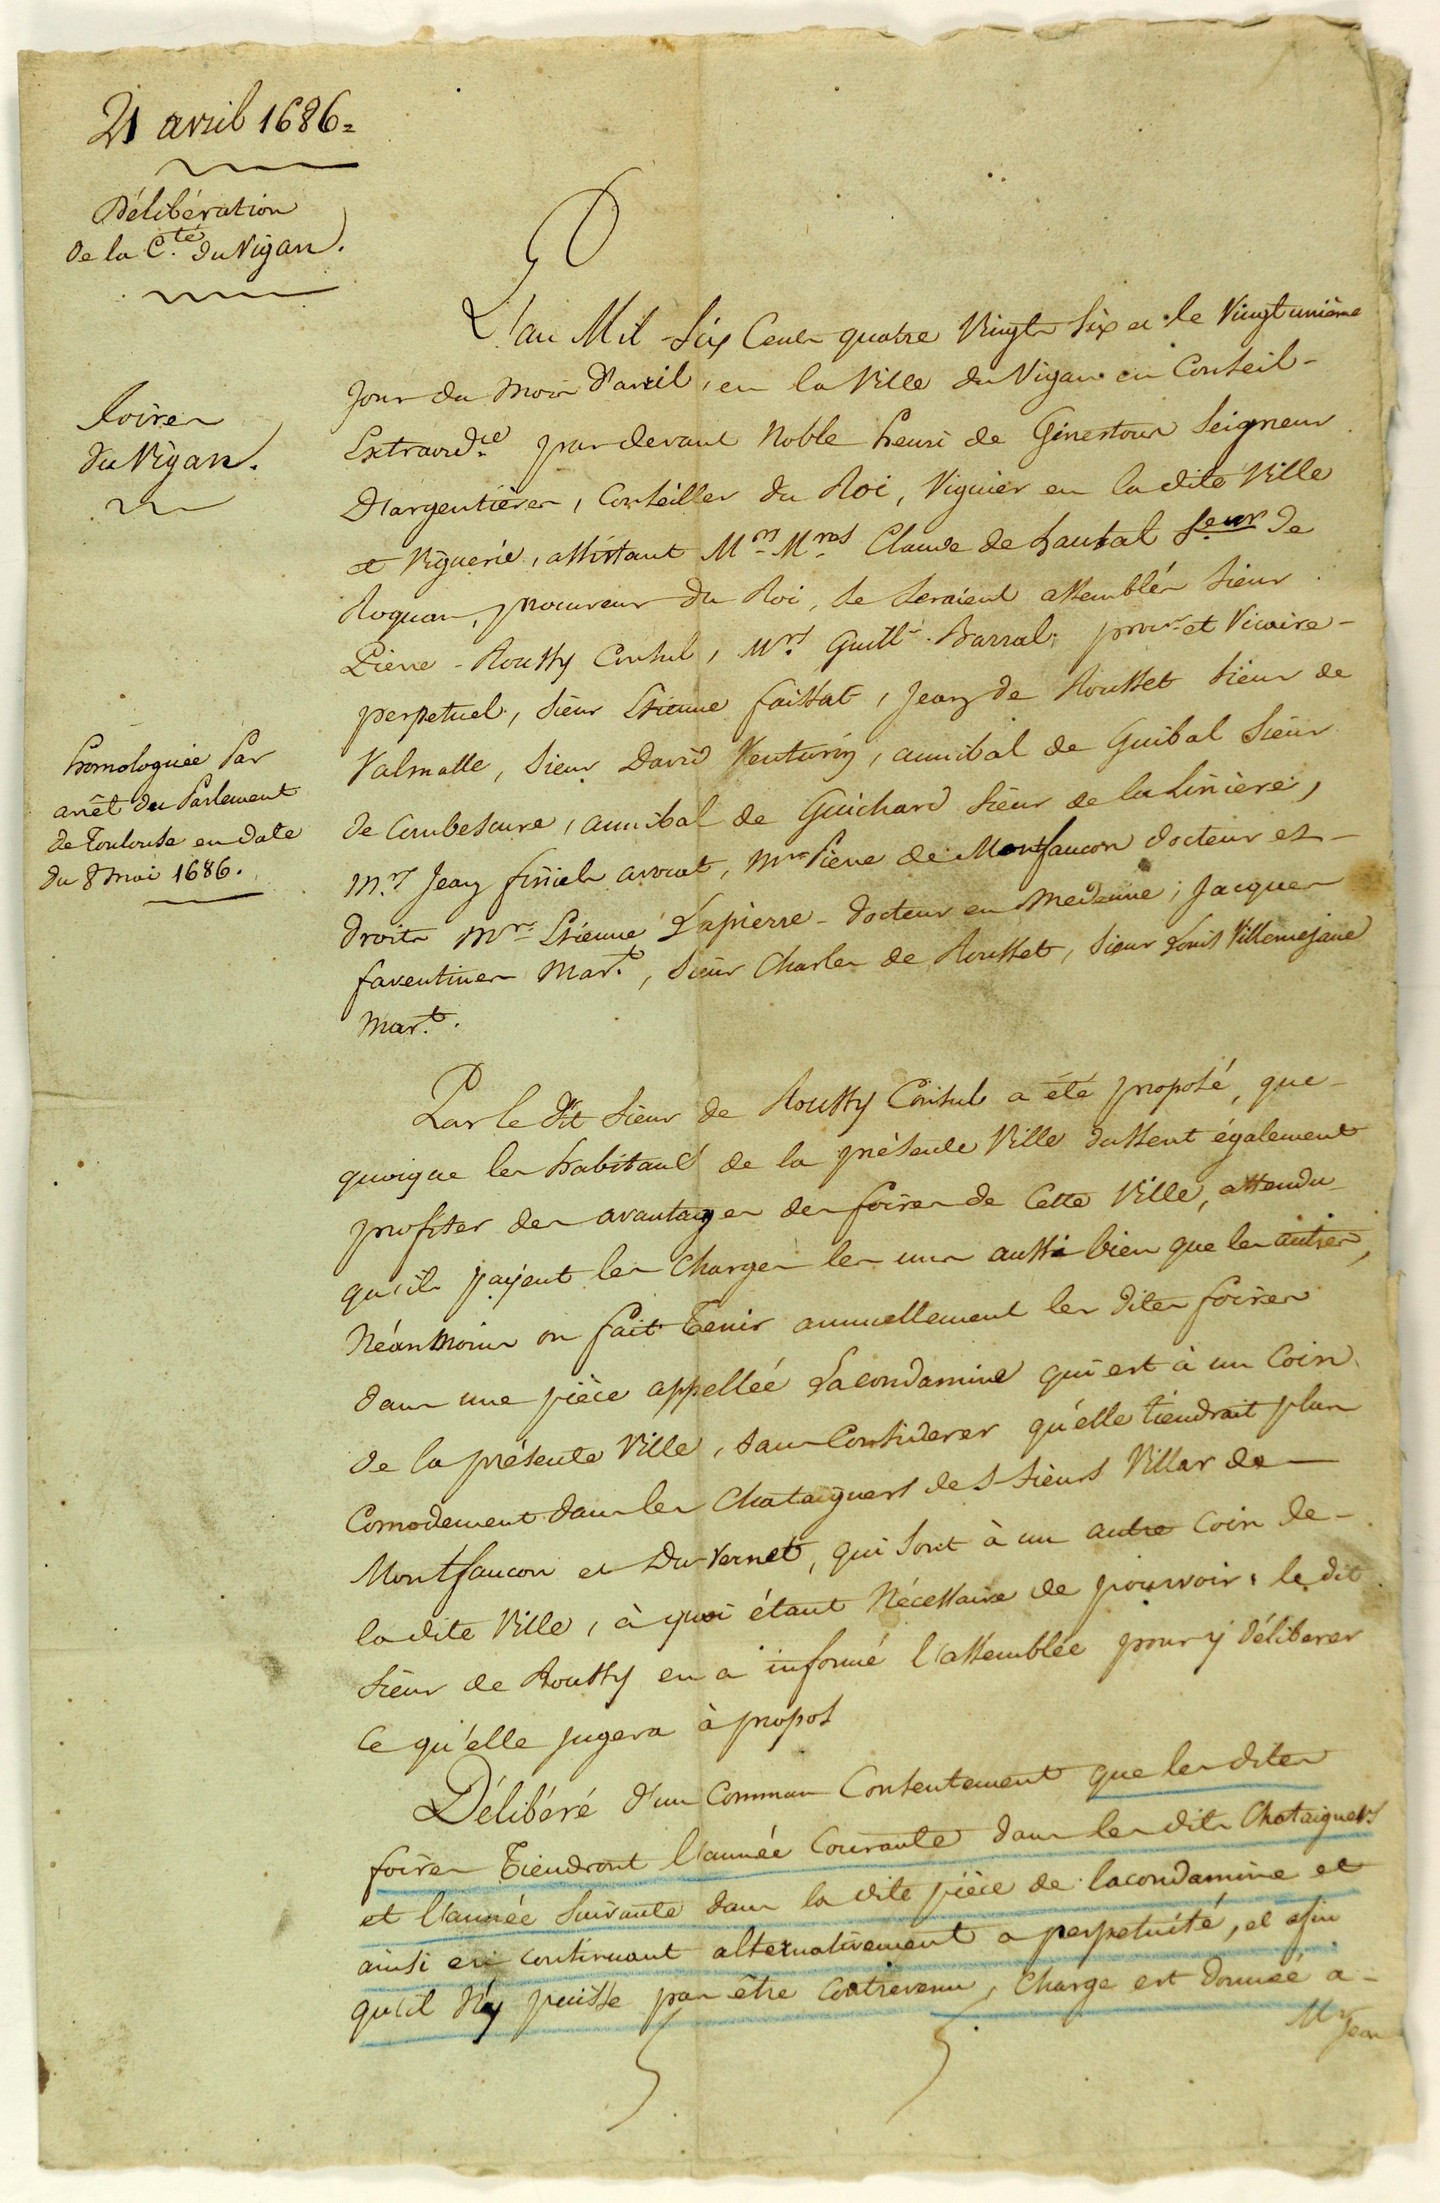 21 avril 1686=
Délibération
de la C.té du Vigan.
foires
du Vigan.
homologuée Par
arrêt du Parlement
de Toulouse en date
du 8 mai 1686.
L'an Mil Six Cents quatre Vingts Six et le Vingtunième
Jour du Mois D'avril, en la Ville du Vigan en Conseil-
Extraord.re par devant Noble henri de Ginestous Seigneur
D'argentières, Conseiller du Roi, Viguier en la dite Ville
et Viguerie, assistant M.rs M.res Claude de Caubal Seur de
Roquan, procureur du Roi, Se Seraient assemblés Sieur
Pierre Roussy Consul, M.rs Guill.e Barral prieur et Vicaire-
perpetuel, Sieur Etienne faissat, Jean de Rousset Sieur de
Valmalle, Sieur David Venturin, annibal de Guibal Sieur
de Combescure, annibal de Guichard Sieur de la Linière,
M.re Jean finiels avocat, M.re Pierre de Montfaucon docteur es-
droits M.re Etienne Lapierre- docteur en Medecine, Jacques
faventines Mar.t, Sieur Charles de Rousset, Sieur Louis Villemejane
Mar.t.
Par le dit Sieur de Roussy Consul a été proposé, que-
quoique les habitans de la présente Ville dussent également
profiter des avantages des foires de Cette Ville, attendu
qu'ils payent les Charges les uns aussi bien que les autres,
Néanmoins on fait Tenir annuellement les dites foires
dans une pièce appellée Lacondamine qui est à un Coin
de la présente Ville, sans Considerer qu'elle tiendrait plus
Comodement dans les Chataigners des Sieurs Villar de-
Montfaucon et Du Vernet, qui Sont à un autre Coin de-
la dite Ville, à quoi étant Nécessaire de pourvoir, le dit
Sieur de Roussy en a informé l'assemblée pour y délibérer
Ce qu'elle jugera à propos
Délibéré d'un Commun Consentement que les dites
foires Tiendront l'année Courante dans les dits Chataigners
et l'année Suivante dans la dite pièce de lacondamine et
ainsi en continuant alternativement a perpetuité, et afin
qu'il N'y puisse pas être Contrevenu, Charge est donnée a-
Mr Jean